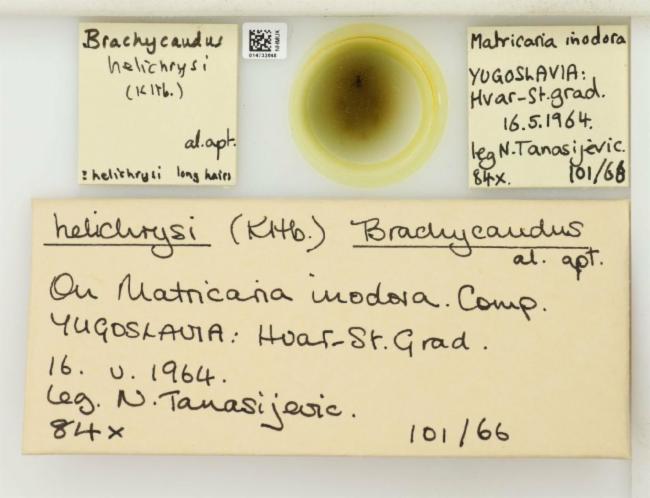 Brachycaudus
helichrysi
(Kltb.)
al.apt.
: helichrysi long hairs
NHMUK
014733948
Matricaria inodora
YUGOSLAVIA:
Hvar-St.grad.
16.5.1964.
leg N.Tanasijević.
84x. 101/66
helichrysi (Kltb.) Brachycaudus
al. apt.
On Matricaria inodora. Comp.
YUGOSLAVIA: Hvar-St.Grad.
16. v. 1964.
Leg. N. Tanasijevic.
84x 101/66